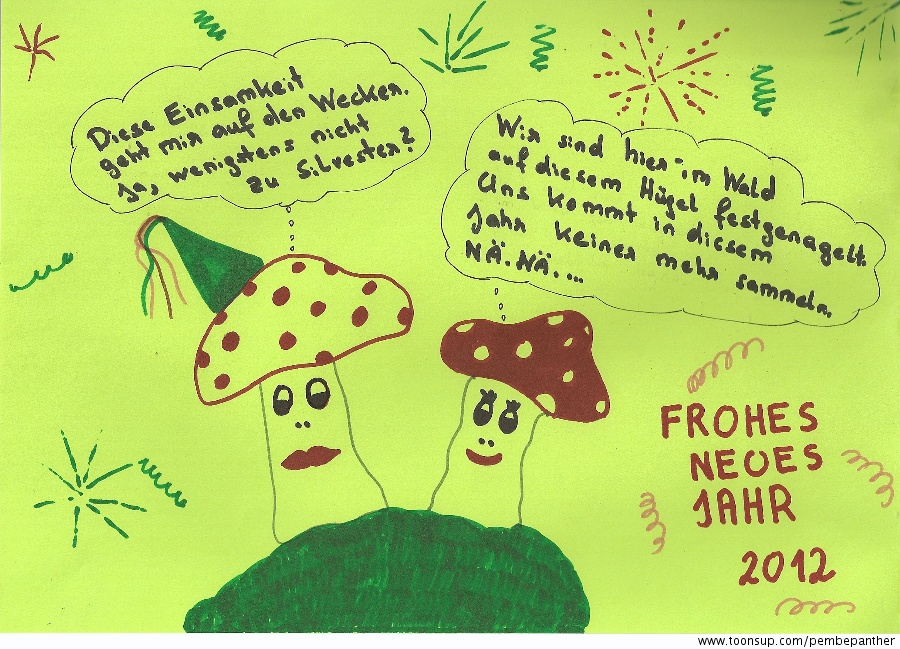 Diese Einsamkeit
geht mir auf den Wecker.
Ja, wenigstens nicht
zu Silvester?
Wir sind hier im Wald
auf diesem Hügel festgenagelt.
Uns kommt in diesem
Jahr keiner mehr sammeln.
NÄ. NÄ. ...
FROHES
NEUES
JAHR
2012
www.toonsup.com/pembepanther